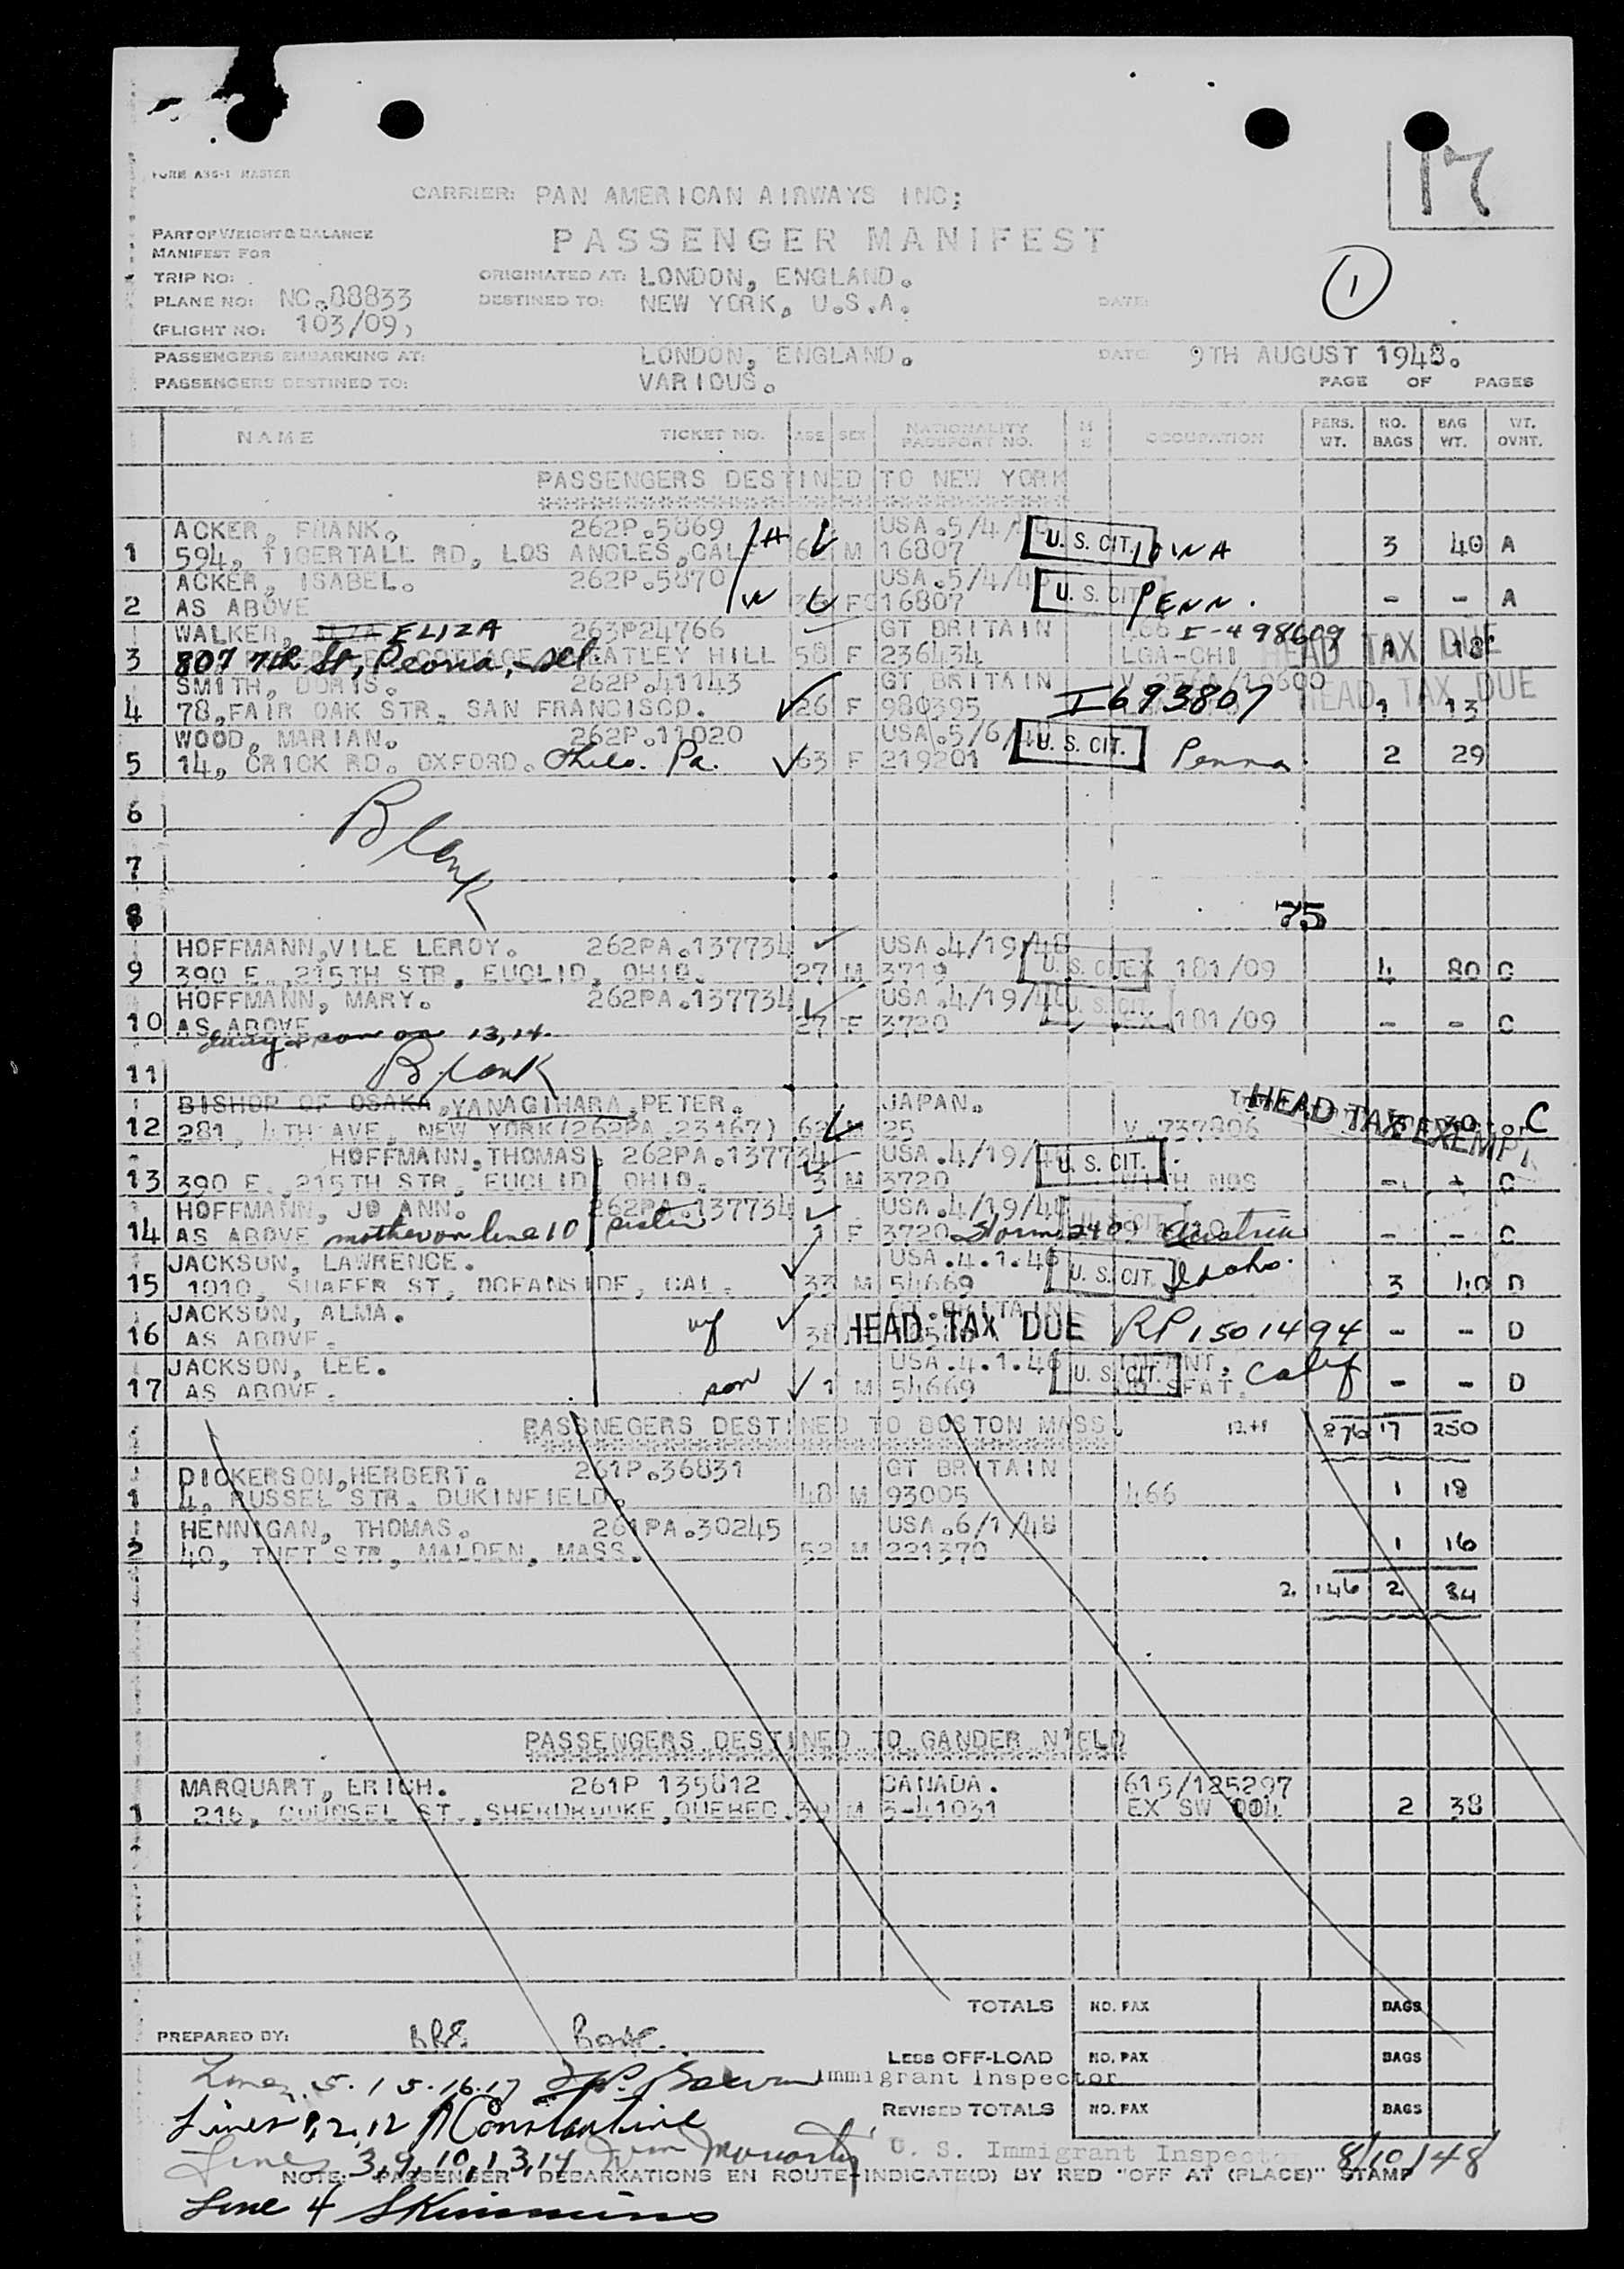 17
FORM ASG-1 MASTER
CARRIER: PAN AMERICAN AIRWAYS INC;
PART OF WEIGHT & BALANCE
MANIFEST FOR
PASSENGER MANIFEST
1
TRIP NO:
ORIGINATED AT: LONDON, ENGLAND.
PLANE NO: NC.88833
DESTINED TO: NEW YORK, U.S.A.
DATE:
(FLIGHT NO: 103/09)
PASSENGERS EMBARKING AT: LONDON, ENGLAND. DATE 9TH AUGUST 1948.
PASSENGERS DESTINED TO: VARIOUS.
PAGE OF PAGES
NAME TICKET NO. AGE SEX NATIONALITY PASSPORT NO. M S OCCUPATION PERS. WT. NO. BAGS BAG WT. WT. OVHT.
PASSENGERS DESTINED TO NEW YORK
*************************************
ACKER, FRANK. 262P.5869 H USA.5/4/
1 594, TIGERTALL RD, LOS ANGLES, CAL M 16807 U. S. CIT. IOWA 3 40 A
ACKER, ISABEL. 262P.5870 W USA.5/4/
2 AS ABOVE F 16807 U. S. CIT PENN. - - A
WALKER, ELIZA 263P24766 GT BRITAIN I-498609
3 807 7th St, Peoria, COTTAGE ATLEY HILL 58 F 236434 LGA-CHI HEAD TAX DUE 1 18
SMITH, DORIS. 262P.41143 GT BRITAIN
4 78, FAIR OAK STR, SAN FRANCISCO. 26 F 980395 I693807 HEAD TAX DUE 1 13
WOOD, MARIAN. 262P.11020 USA.5/6/
5 14, CRICK RD. OXFORD. Phila. Pa. 63 F 219201 U. S. CIT. Penna. 2 29
6
Blank
7
8 75
HOFFMANN, VILE LEROY. 262PA.137734 USA.4/19/48
9 390 E., 215TH STR, EUCLID, OHIO. 27 M 3719 U. S. CIT EX 181/09 4 80 C
HOFFMANN, MARY. 262PA.137734 USA.4/19/4
10 AS ABOVE 27 F 3720 U. S. CIT. EX 181/09 - - C
son on 13,14.
11 Blank
BISHOP OF OSAKA, YANAGIHARA, PETER. JAPAN. HEAD TAX EXEMPT
12 281, 4TH AVE, NEW YORK (262PA.23167) 62 M 25 V.737806 30 C
HOFFMANN, THOMAS. 262PA.137734 USA.4/19/4 U. S. CIT.
13 390 E., 215TH STR, EUCLID, OHIO. 3 M 3720 WITH MRS - - C
HOFFMANN, JO ANN. 262PA.137734 USA.4/19/48 U. S. CIT.
14 AS ABOVE mother on line 10 sister 1 F 3720 Austria - - C
JACKSON, LAWRENCE. USA.4.1.46
15 1010, SHAFER ST, OCEANSIDE, CAL. 33 M 54669 U. S. CIT. Idaho. 3 40 D
JACKSON, ALMA. GT BRITAIN
16 AS ABOVE. wf 38 HEAD TAX DUE RP1501494 - - D
JACKSON, LEE. USA.4.1.46 INFANT,
17 AS ABOVE. son 1 M 54669 U. S. CIT. NO SEAT. Calif - - D
PASSNEGERS DESTINED TO BOSTON MASS. 876 17 250
*************************************
DICKERSON, HERBERT. 261P.36831 GT BRITAIN
1 4, RUSSEL STR. DUKINFIELD. 48 M 93005 466 1 18
HENNIGAN, THOMAS. 261PA.30245 USA.6/1/48
2 40, TUFT STR, MALDEN, MASS. 52 M 221370 1 16
2. 146 2 34
PASSENGERS DESTINED TO GANDER N'FLD
*************************************
MARQUART, ERICH. 261P 135812 CANADA. 615/125297
1 216, COUNSEL ST., SHERBROOKE, QUEBEC. 39 M 3-41031 EX SW 004 2 38
TOTALS NO. PAX BAGS
PREPARED BY:
LESS OFF-LOAD NO. PAX BAGS
Lines 5. 15. 16. 17 Immigrant Inspector
REVISED TOTALS NO. PAX BAGS
Lines 1, 2, 12 Constantine
Lines 3, 9, 10, 13, 14 Moriarty U. S. Immigrant Inspector 8/10/48
NOTE: PASSENGER DEBARKATIONS EN ROUTE INDICATE(D) BY RED "OFF AT (PLACE)" STAMP
Line 4 SKimmins